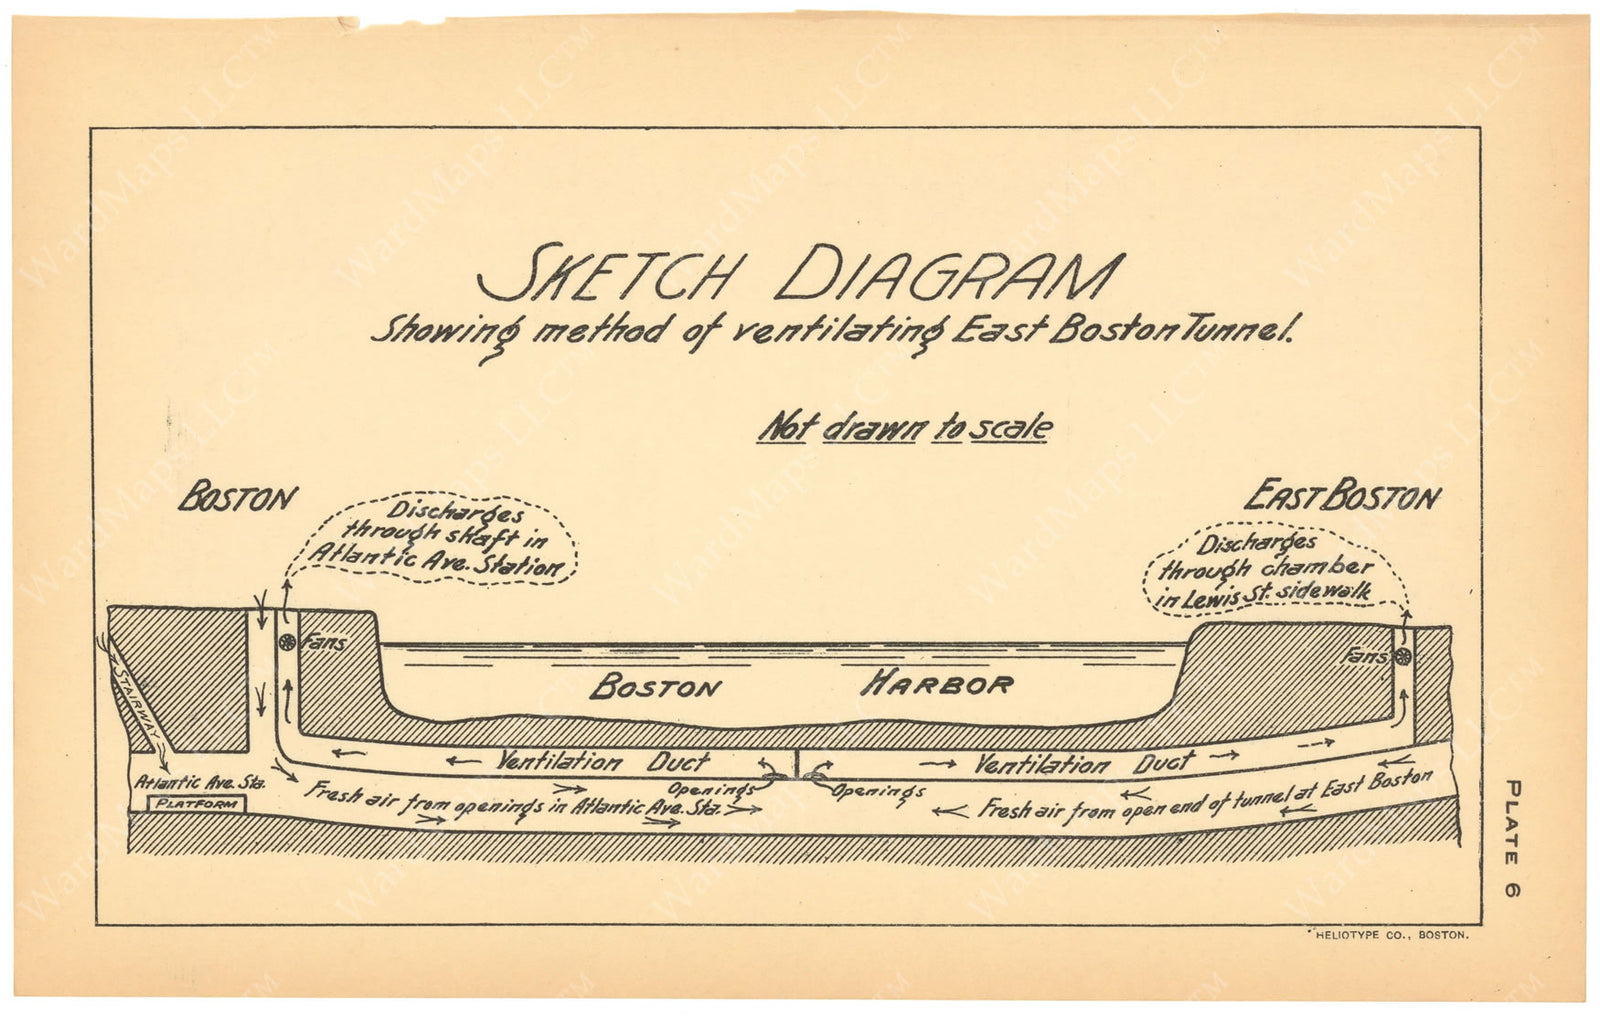 SKETCH DIAGRAM
Showing method of ventilating East Boston Tunnel.
Not drawn to scale
BOSTON
EAST BOSTON
Discharges
through shaft in
Atlantic Ave. Station
Discharges
through chamber
in Lewis St. sidewalk
Fans
Fans
STAIRWAY
BOSTON HARBOR
Ventilation Duct
Ventilation Duct
Atlantic Ave. Sta.
PLATFORM
Openings
Openings
Fresh air from openings in Atlantic Ave. Sta.
Fresh air from open end of tunnel at East Boston
PLATE 6
HELIOTYPE CO., BOSTON.
WardMaps LLC™